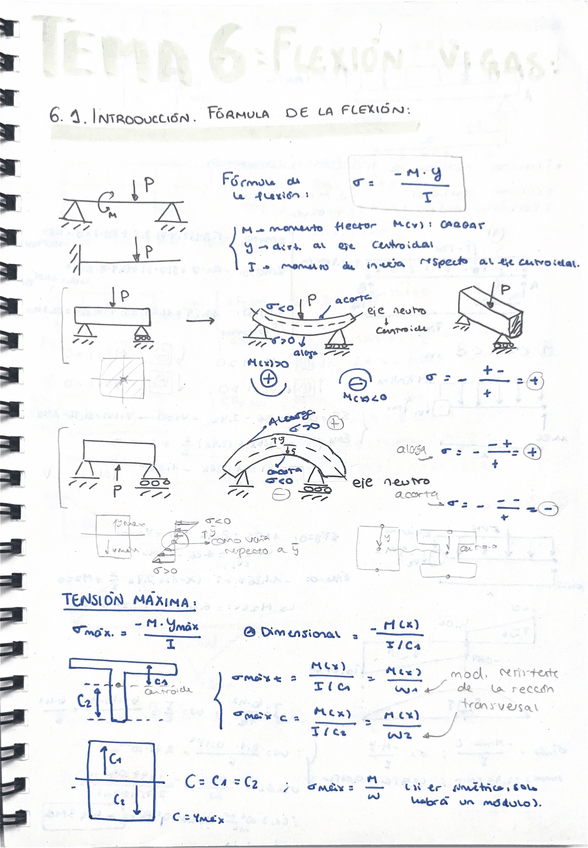 TEMA 6: FLEXIÓN VIGAS:
6.1. INTRODUCCIÓN. FÓRMULA DE LA FLEXIÓN:
P
M
P
Fórmula de la flexión:
σ = -M·y / I
M → momento flector M(x): CARGAS
y → dist. al eje centroidal
I → momento de inercia respecto al eje centroidal.
P
σ<0 P acorta
eje neutro
↓ centroide
σ>0 alarga
P
M(x)>0
+
-
M(x)<0
σ = - + - / + = +
P
Alarga σ>0 +
y
acorta
σ<0
-
eje neutro
alarga σ = - - + / + = +
acorta σ = - - - / + = -
σ<0
como varía respecto a y
σ>0
y
TENSIÓN MÁXIMA:
σmáx. = -M·ymáx / I
Dimensional = - M(x) / I/C1
C1
centroide
C2
σmáx t = M(x) / I/C1 = M(x) / W1
σmáx c = M(x) / I/C2 = M(x) / W2
mod. resistente de la sección transversal
C1
C2
C = C1 = C2 ; σmáx = M / W (si es simétrica, solo habrá un módulo).
C = Ymáx